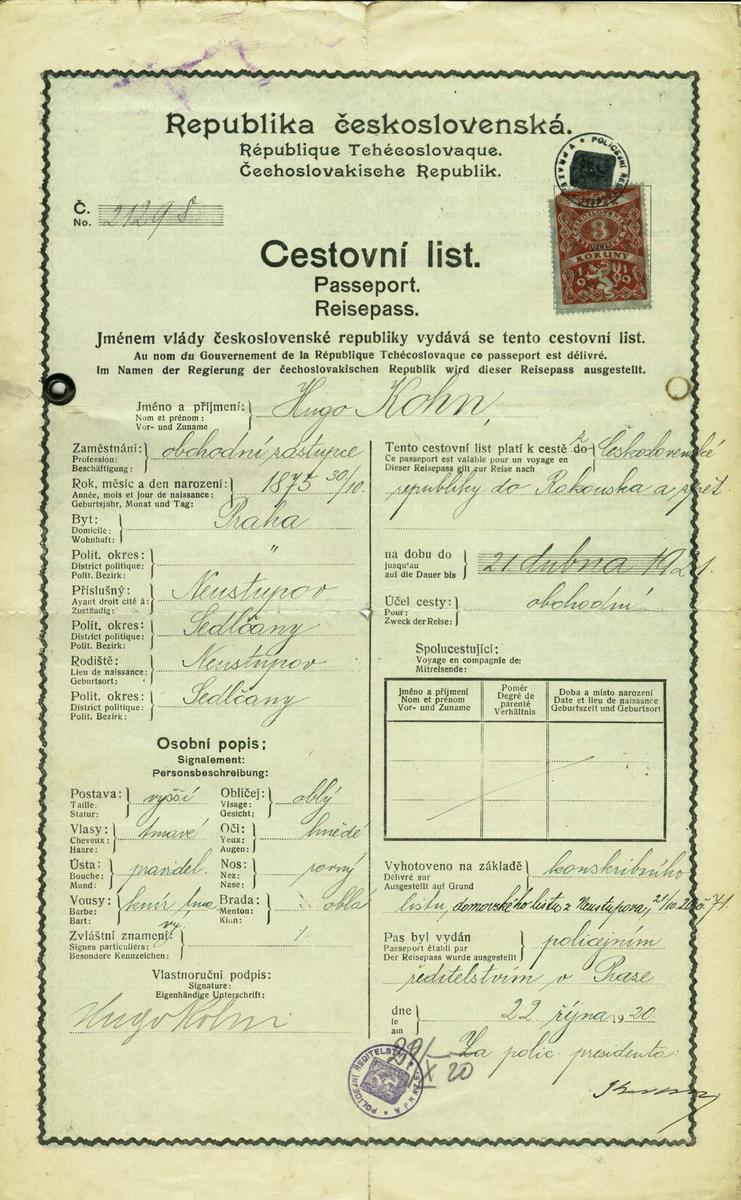 Republika československá.
République Tchécoslovaque.
Čechoslovakische Republik.
Č.
No. 21298
Cestovní list.
Passeport.
Reisepass.
3
KORUNY
1919
Jménem vlády československé republiky vydává se tento cestovní list.
Au nom du Gouvernement de la République Tchécoslovaque ce passeport est délivré.
Im Namen der Regierung der čechoslovakischen Republik wird dieser Reisepass ausgestellt.
Jméno a příjmení: Hugo Kohn,
Nom et prénom:
Vor- und Zuname
Zaměstnání: obchodní zástupce
Profession:
Beschäftigung:
Rok, měsíc a den narození: 1875 30/10.
Année, mois et jour de naissance:
Geburtsjahr, Monat und Tag:
Byt: Praha
Domicile:
Wohnhaft:
Polit. okres: "
District politique:
Polit. Bezirk:
Příslušný: Neustupov
Ayant droit cité à:
Zuständig:
Polit. okres: Sedlčany
District politique:
Polit. Bezirk:
Rodiště: Neustupov
Lieu de naissance:
Geburtsort:
Polit. okres: Sedlčany
District politique:
Polit. Bezirk:
Osobní popis:
Signalement:
Personsbeschreibung:
Postava: vyšší Obličej: oblý
Taille: Visage:
Statur: Gesicht:
Vlasy: tmavé Oči: hnědé
Cheveux: Yeux:
Haare: Augen:
Ústa: pravidel. Nos: rovný
Bouche: Nez:
Mund: Nase:
Vousy: knír tma vý Brada: oblá
Barbe: Menton:
Bart: Kinn:
Zvláštní znamení: /
Signes particuliers:
Besondere Kennzeichen:
Vlastnoruční podpis:
Signature:
Eigenhändige Unterschrift:
Hugo Kohn
Tento cestovní list platí k cestě do z Československé
Ce passeport est valable pour un voyage en
Dieser Reisepass gilt zur Reise nach
republiky do Rakouska a zpět
na dobu do 21 dubna 1921.
jusqu'au
auf die Dauer bis
Účel cesty: obchodní
Pour:
Zweck der Reise:
Spolucestující:
Voyage en compagnie de:
Mitreisende:
Jméno a příjmení Poměr Doba a místo narození
Nom et prénom Degré de parenté Date et lieu de naissance
Vor- und Zuname Verhältnis Geburtszeit und Geburtsort
Vyhotoveno na základě konskribního
Délivré sur
Ausgestellt auf Grund
listu, domovského listu z Neustupova, 21/10
Pas byl vydán policejním
Passeport établi par
Der Reisepass wurde ausgestellt
ředitelstvím v Praze
dne 22 října 1920
le
am
Za polic. presidenta:
X 20
POLICEJNÍ ŘEDITELSTVÍ